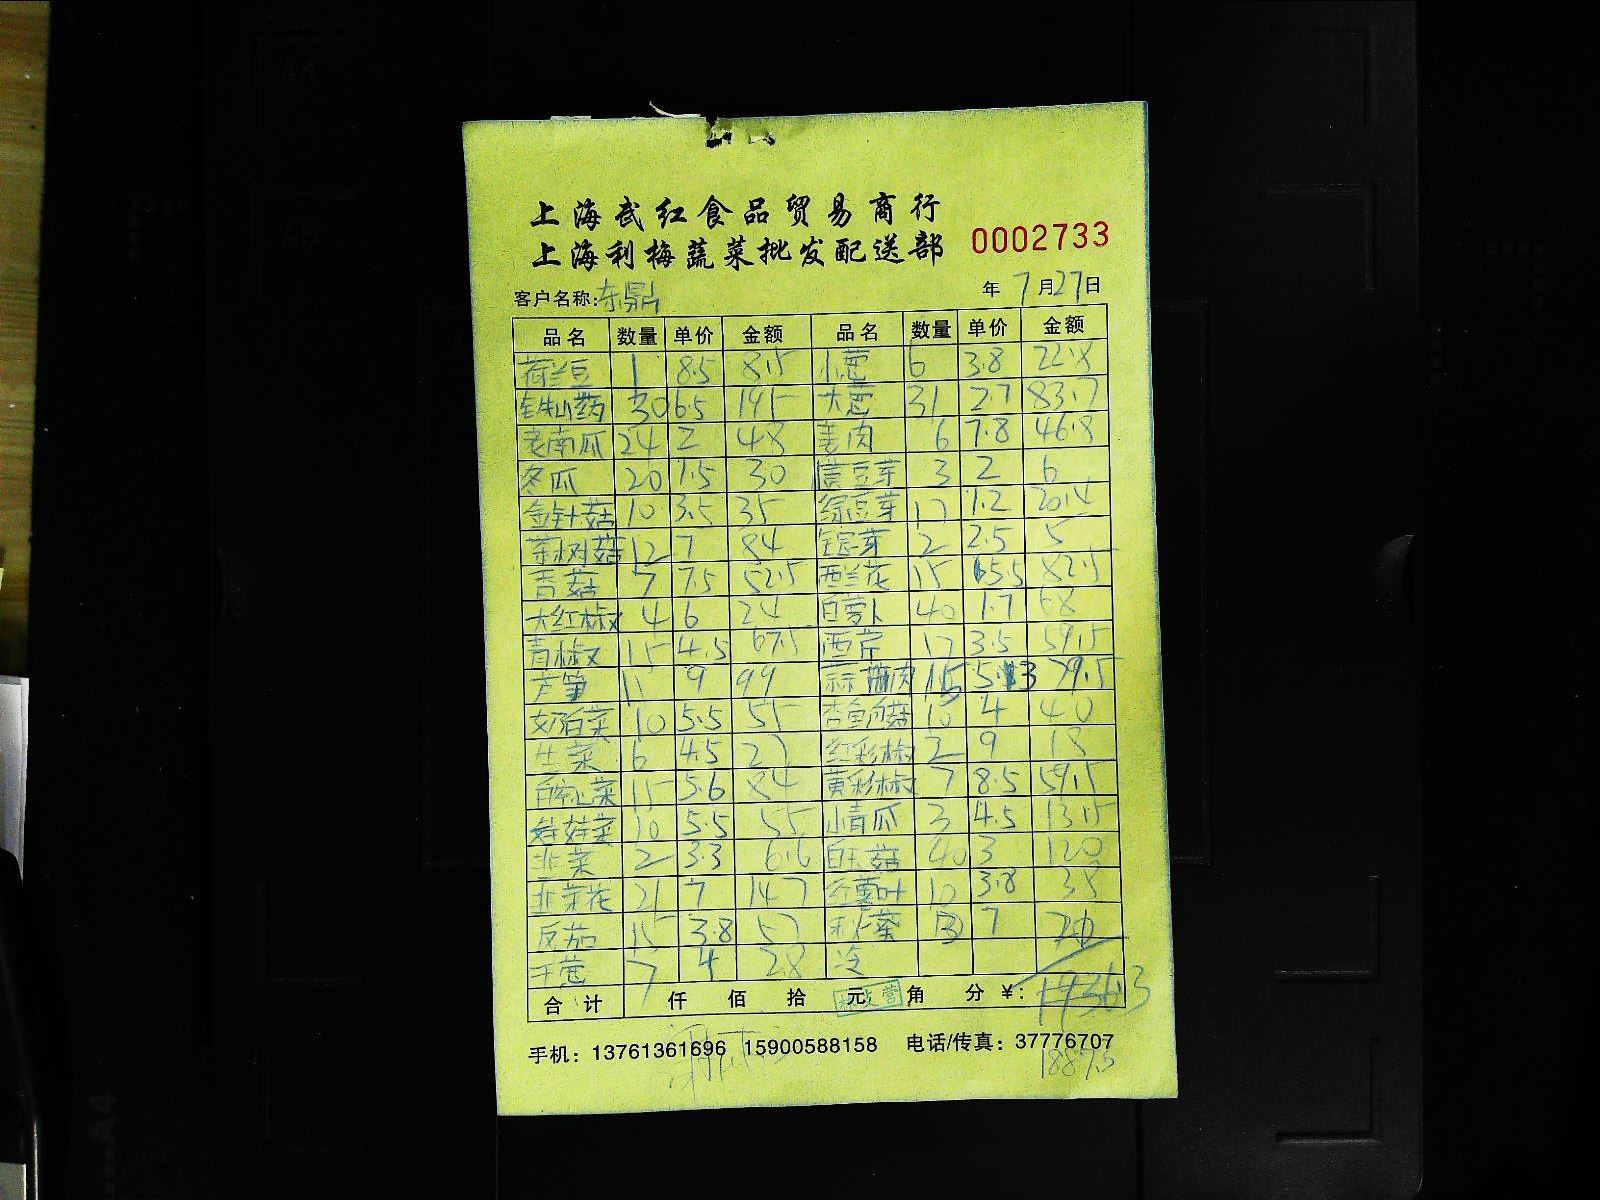 上海武红食品贸易商行
上海利梅蔬菜批发配送部 0002733
客户名称:东鼎 年 7月27日
品名 数量 单价 金额 品名 数量 单价 金额
荷兰豆 1 8.5 8.5 小葱 6 3.8 22.8
铁山药 30 6.5 195 大葱 31 2.7 83.7
老南瓜 24 2 48 姜肉 6 7.8 46.8
冬瓜 20 1.5 30 黄豆芽 3 2 6
金针菇 10 3.5 35 绿豆芽 17 1.2 20.4
茶树菇 12 7 84 芽 2 2.5 5
香菇 7 7.5 52.5 西兰花 15 5.5 82.5
大红椒 4 6 24 白萝卜 40 1.7 68
青椒 15 4.5 67.5 西芹 17 3.5 59.5
芦笋 11 9 99 蒜肉 15 5.3 79.5
奶白菜 10 5.5 55 杏鲍菇 10 4 40
生菜 6 4.5 27 红彩椒 2 9 18
菜 15 5.6 84 黄彩椒 7 8.5 59.5
娃娃菜 10 5.5 55 小青瓜 3 4.5 13.5
韭菜 2 3.3 6.6 白玉菇 40 3 120
韭菜花 21 7 147 红薯叶 10 3.8 38
反茄 15 3.8 57 秋葵 3 7
干葱 7 4 28
合计 仟 佰 拾 元 角 分 ¥: 1936.3
手机: 13761361696 15900588158 电话/传真: 37776707
1887.3